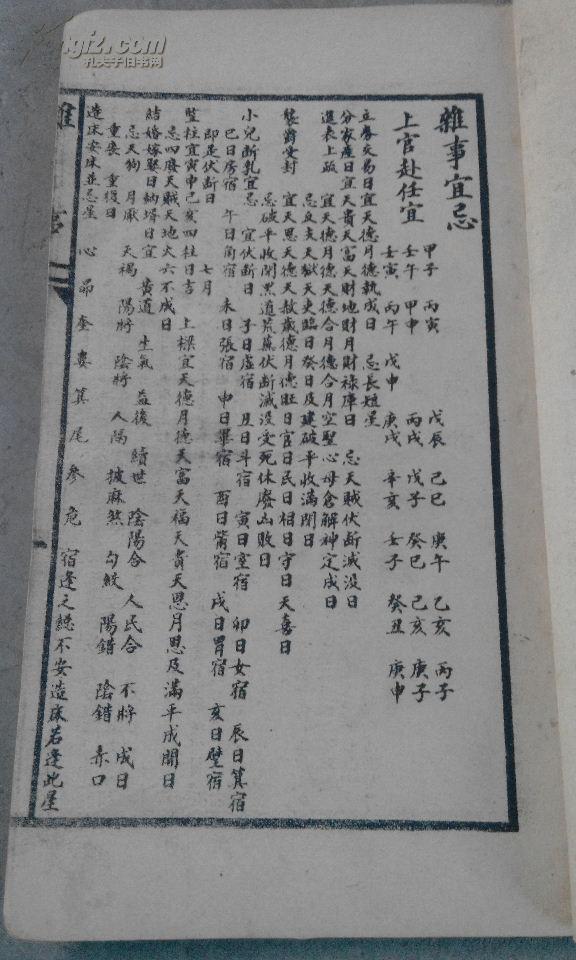 雜事宜忌
上官赴任宜
甲子 丙寅 戊辰 己巳 庚午 乙亥 丙子
壬午 甲申 丙戌 戊子 癸巳 己亥 庚子
壬寅 丙午 戊申 庚戌 辛亥 壬子 癸丑 庚申
立券交易日宜天德月德執成日 忌長短星
分家產日宜天貴天富天財地財月財祿庫日 忌天賊伏斷滅沒日
進表上疏 宜天德月德天德合月德合月空聖心母倉解神定成日
忌反支天獄天吏臨日癸日及建破平收滿閉日
襲爵受封 宜天恩天德天赦歲德月德旺日官日民日相日守日天喜日
忌破平收閉黑道荒蕪伏斷滅沒受死休廢凶敗日
小兒斷乳宜忌 宜伏斷日 子日虛宿 丑日斗宿 寅日室宿 卯日女宿 辰日箕宿
巳日房宿 午日角宿 未日張宿 申日畢宿 酉日觜宿 戌日胃宿 亥日壁宿
即是伏斷日 七月
豎柱宜寅申巳亥四柱日吉 上樑宜天德月德天富天福天貴天恩月恩及滿平成開日
忌四廢天賊天地火六不成日
結婚嫁娶日納壻日宜 黃道 生氣 益後 續世 陰陽合 人民合 不將 成日
忌天狗 月厭 天禍 陽將 陰將 人隔 披麻煞 勾絞 陽錯 陰錯 赤口
重喪 重復日
造床安床並忌星 心 昴 奎 婁 箕 尾 參 危 宿逢之總不安造床若逢此星
孔夫子旧书网